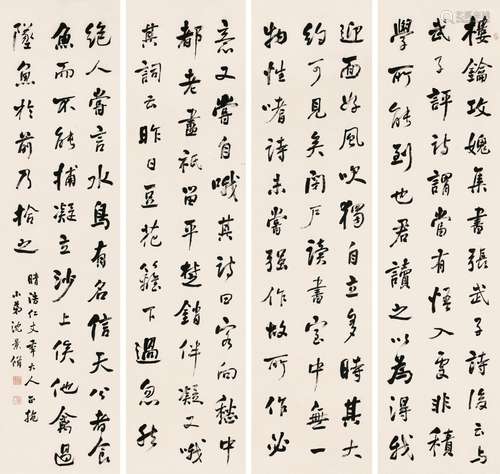 樓鑰攻媿集書張武子詩後云与
武子評詩謂當有悟入處非積
學所能到也君讀之以為得我
迎面好風吹獨自立多時其大
約可見矣閉戶讀書室中無一
物性嗜詩未嘗強作故所作必
意又嘗自哦其詩曰客向愁中
都老盡祇留平楚銷伴凝又哦
其詞云昨日豆花籬下過忽然
絕人嘗言水鳥有名信天公者食
魚而不能捕凝立沙上俟他禽過
墜魚於前乃拾之
浩仁丈大人正
小弟沈景脩